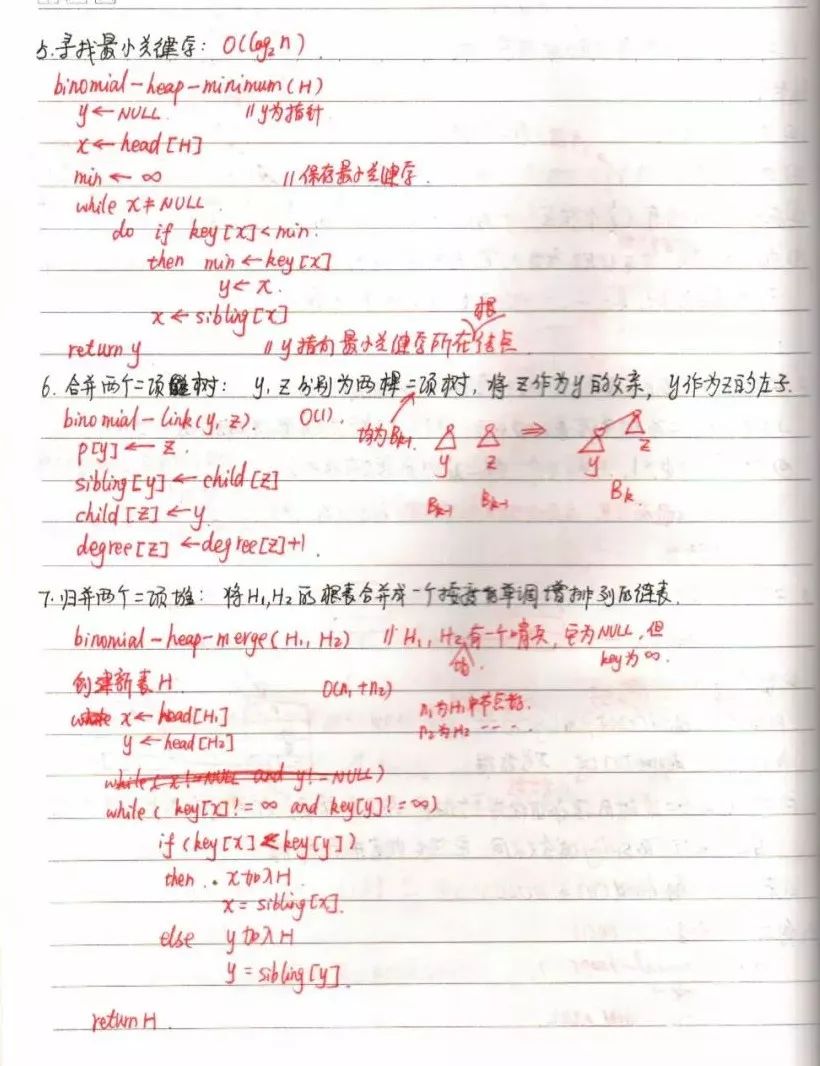 5.寻找最小关键字: O(log₂n)
binomial-heap-minimum(H)
y←NULL //y为指针
x←head[H]
min←∞ //保存最小关键字.
while x≠NULL
do if key[x]<min:
then min←key[x]
y←x.
x←sibling[x]
return y //y指向最小关键字所在根结点
6.合并两个二项树: y,z分别为两棵二项树,将z作为y的父亲,y作为z的左子.
binomial-link(y,z). O(1). 均为Bk-1.
p[y]←z. y z ⇒ y z
sibling[y]←child[z]
child[z]←y. Bk-1 Bk-1 Bk.
degree[z]←degree[z]+1.
7.归并两个二项堆: 将H₁,H₂的根表合并成一个按度数单调增排列的链表.
binomial-heap-merge(H₁,H₂) //H₁,H₂均有一个哨兵,它为NULL,但
key为∞.
创建新表H. O(n₁+n₂) n₁为H₁中节点数.
x←head[H₁] n₂为H₂----.
y←head[H₂]
while(x!=NULL and y!=NULL)
while(key[x]!=∞ and key[y]!=∞)
if(key[x]<key[y])
then x加入H.
x=sibling[x].
else y加入H
y=sibling[y].
return H.